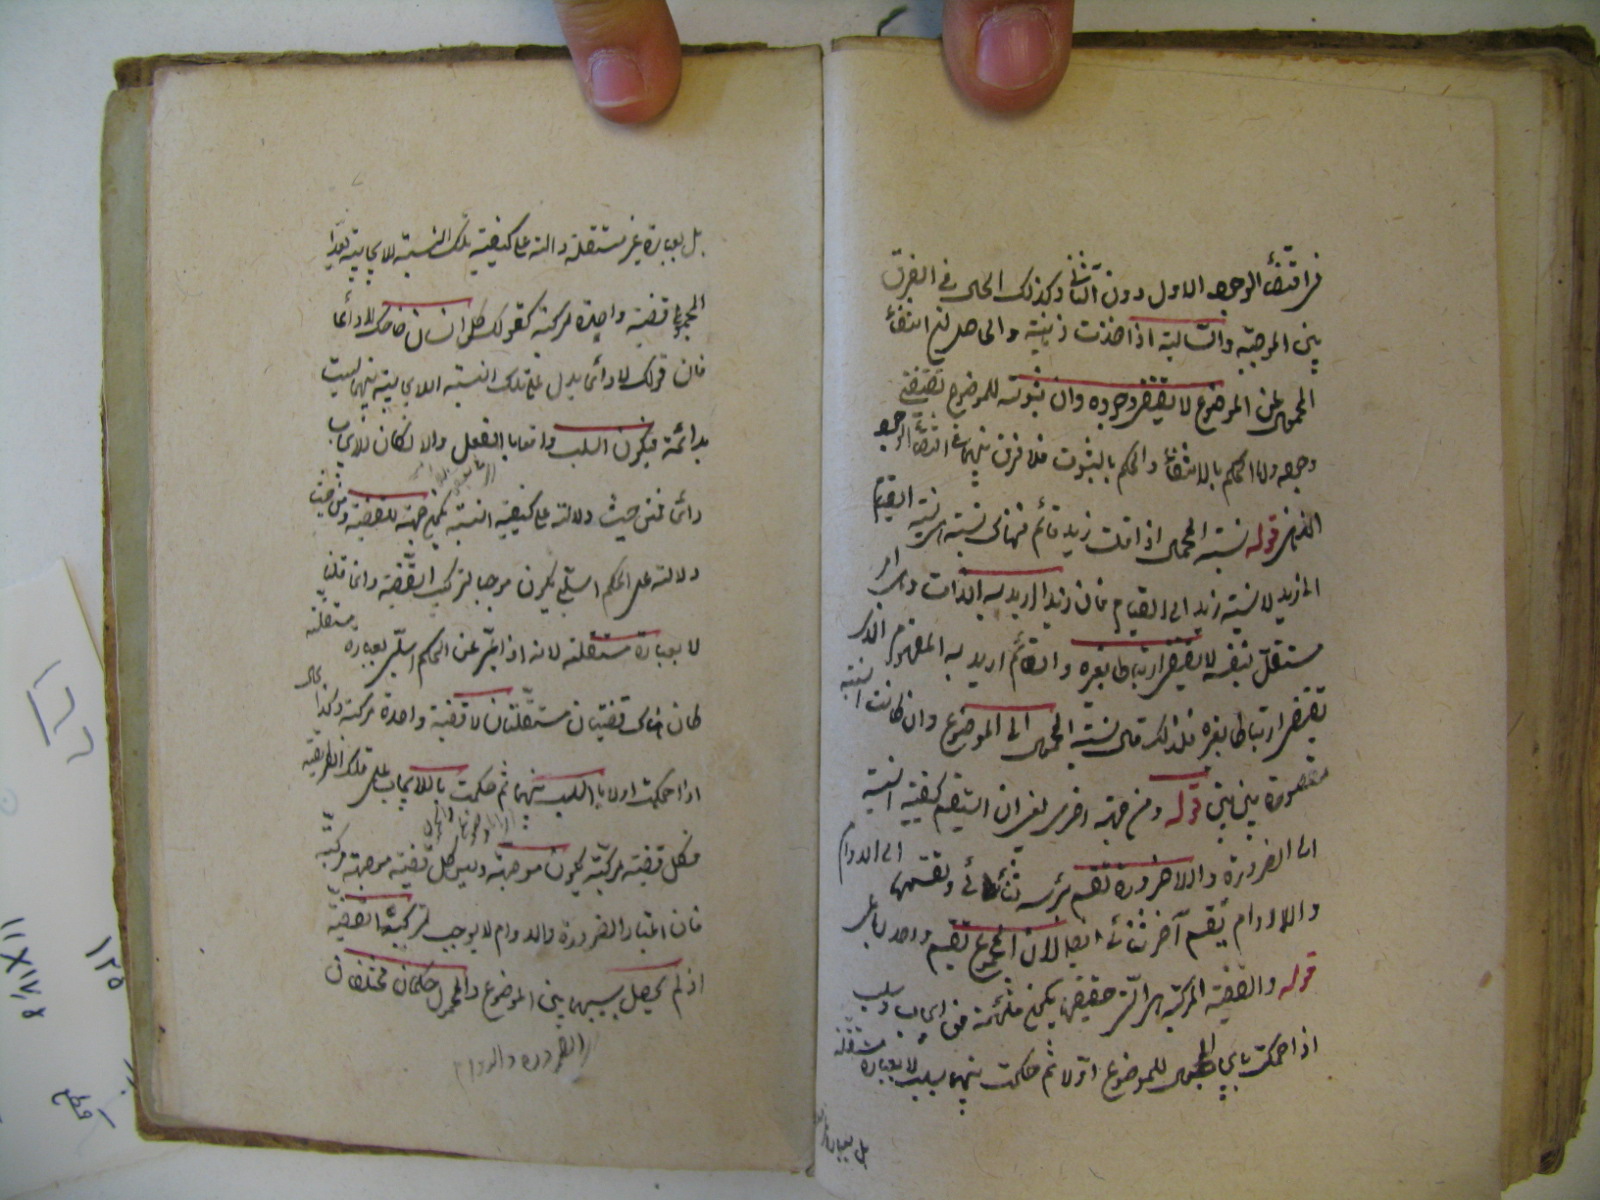 في اقتضاء الوجود الاول دون الثاني وكذلك الحال في الفرق
بين الموجبة والسالبة اذا اخذت ذهنية والحاصل ان انتفاء
المحمول عن الموضوع لا يقتضي وجوده وان ثبوته للموضوع يقتضي
وجوده واما الحكم بالانتفاء والحكم بالثبوت فلا فرق بينهما في اقتضاء الوجود
الذهني قوله نسبة المحمول اذا قلت زيد قائم فهناك نسبة هي نسبة القيام
الى زيد لا نسبة زيد الى القيام فان زيدا اريد به الذات وهي امر
مستقل بنفسه لا يقتضي ارتباطا بغيره والقائم اريد به المفهوم الذي
يقتضي ارتباطا بغيره فلذلك قال نسبة المحمول الى الموضوع وان كانت النسبة
متصورة بين بين قوله ومن جهة اخرى يعني ان انقسام كيفية النسبة
الى الضرورة واللاضرورة تقسيم برأسه ثنائي وتقسيمها الى الدوام
واللادوام تقسيم آخر ثنائي ايضا لا ان المجموع تقسيم واحد رباعي
قوله والقضية المركبة هي التي حقيقتها يكون ملتئمة من ايجاب وسلب
اذا حكمت بايجاب المحمول للموضوع اولا ثم حكمت بينهما بسلب لا بعبارة مستقلة
بل بعبارة
بل بعبارة غير مستقلة دالة على كيفية تلك النسبة الايجابية يعد
المجموع قضية واحدة مركبة كقولك كل انسان ضاحك لا دائما
فان قولك لا دائما يدل على تلك النسبة الايجابية بينهما ليست
بدائمة فيكون السلب واقعا بالفعل والا لكان الايجاب
دائما فمن حيث دلالته على كيفية النسبة يكون جهة للقضية ومن حيث
دلالته على الحكم السلبي يكون موجبا لتركيب القضية وانما قلنا
لا بعبارة مستقلة لانه اذا عبر عن الحكم السلبي بعبارة مستقلة
كان هناك قضيتان مستقلتان لا قضية واحدة مركبة وكذا الحال
اذا حكمت اولا بالسلب بينهما ثم حكمت بالايجاب على تلك الطريقة
فكل قضية مركبة يكون موجهة وليس كل قضية موجهة مركبة
فان اعتبار الضرورة والدوام لا يوجب تركيب القضية
اذ لم يحصل بسببهما بين الموضوع والمحمول حكمان مختلفان
الضرورة والدوام
١٢٥